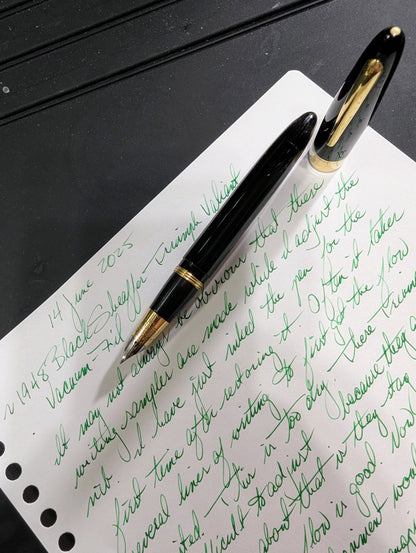 14 June 2025
1948 Black Sheaffer Triumph Valiant
Vacuum-Fil
It may not always be obvious that these
writing samples are made while I adjust the
nib. I have just inked the pen for the
first time after restoring it. Often it takes
several lines of writing to first get the flow
This is too dry. These Trium
difficult to adjust because they
about that is they stay
flow is good. Now